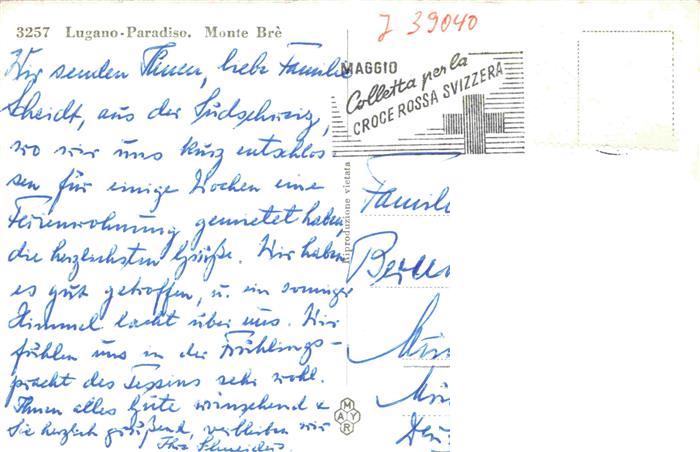 J 39040
3257 Lugano-Paradiso. Monte Brè
Wir senden Ihnen, liebe Familie
Scheidt, aus der Südschweiz,
wo wir uns kurz entschlos
sen für einige Wochen eine
Ferienwohnung gemietet haben,
die herzlichsten Grüße. Wir haben
es gut getroffen, u. ein sonniger
Himmel lacht über uns. Wir
fühlen uns in der Frühlings-
pracht des Tessins sehr wohl.
Ihnen alles Gute wünschend &
Sie herzlich grüßend, verbleiben wir
Ihre Schneiders.
MAGGIO
Colletta per la
CROCE ROSSA SVIZZERA
Riproduzione vietata
Famili
MAYR